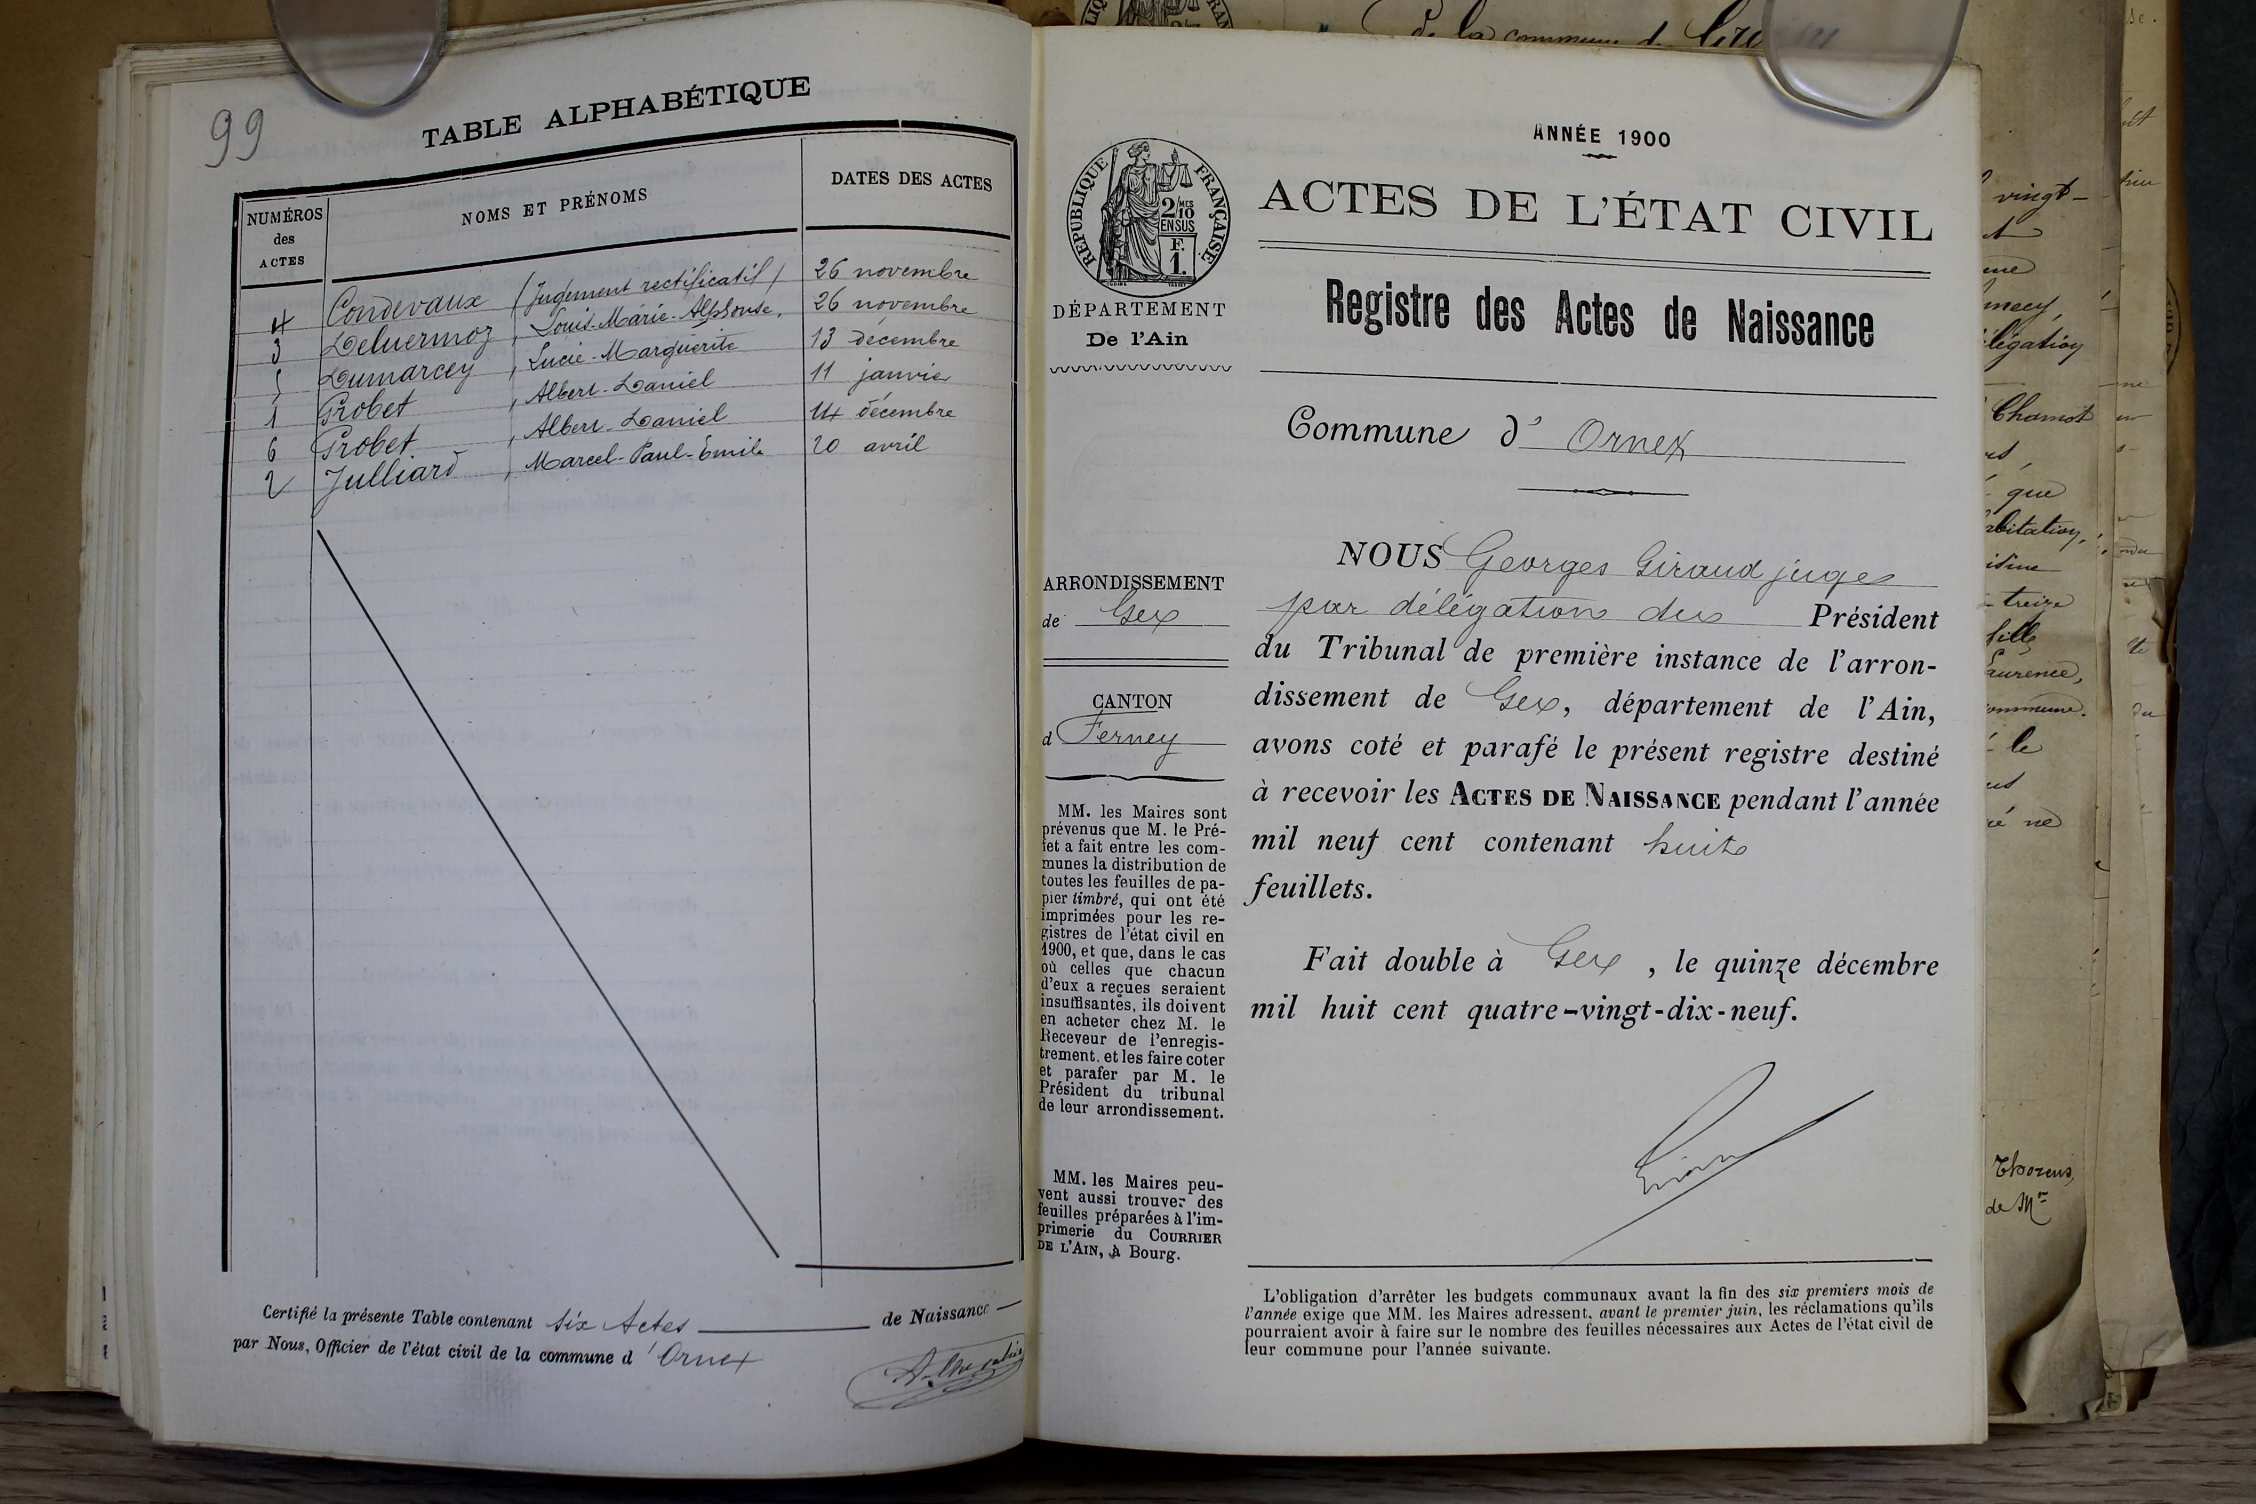 99
TABLE ALPHABÉTIQUE
NUMÉROS
des
ACTES
NOMS ET PRÉNOMS
DATES DES ACTES
4 Condevaux (Jugement rectificatif) 26 novembre
3 Deluermoz, Louis-Marie-Alphonse. 26 novembre
5 Dumarcey, Lucie-Marguerite 13 décembre
1 Grobet, Albert-Daniel 11 janvier
6 Grobet, Albert-Daniel 14 décembre
2 Julliard, Marcel-Paul-Émile 20 avril
Certifié la présente Table contenant six Actes de Naissance
par Nous, Officier de l'état civil de la commune d'Ornex
RÉPUBLIQUE FRANÇAISE
2/10
MES
EN SUS
F.
1.
DÉPARTEMENT
De l'Ain
ARRONDISSEMENT
de Gex
CANTON
d Ferney
MM. les Maires sont
prévenus que M. le Pré-
fet a fait entre les com-
munes la distribution de
toutes les feuilles de pa-
pier timbré, qui ont été
imprimées pour les re-
gistres de l'état civil en
1900, et que, dans le cas
où celles que chacun
d'eux a reçues seraient
insuffisantes, ils doivent
en acheter chez M. le
Receveur de l'enregis-
trement, et les faire coter
et parafer par M. le
Président du tribunal
de leur arrondissement.
MM. les Maires peu-
vent aussi trouver des
feuilles préparées à l'im-
primerie du COURRIER
DE L'AIN, à Bourg.
ANNÉE 1900
ACTES DE L'ÉTAT CIVIL
Registre des Actes de Naissance
Commune d' Ornex
NOUS Georges Giraud juge
par délégation du Président
du Tribunal de première instance de l'arron-
dissement de Gex, département de l'Ain,
avons coté et parafé le présent registre destiné
à recevoir les ACTES DE NAISSANCE pendant l'année
mil neuf cent contenant huit
feuillets.
Fait double à Gex, le quinze décembre
mil huit cent quatre-vingt-dix-neuf.
L'obligation d'arrêter les budgets communaux avant la fin des six premiers mois de
l'année exige que MM. les Maires adressent, avant le premier juin, les réclamations qu'ils
pourraient avoir à faire sur le nombre des feuilles nécessaires aux Actes de l'état civil de
leur commune pour l'année suivante.
de la commune d
vingt-
Chamot
que
treize
fille
commune.
le
Thorens,
de Mr